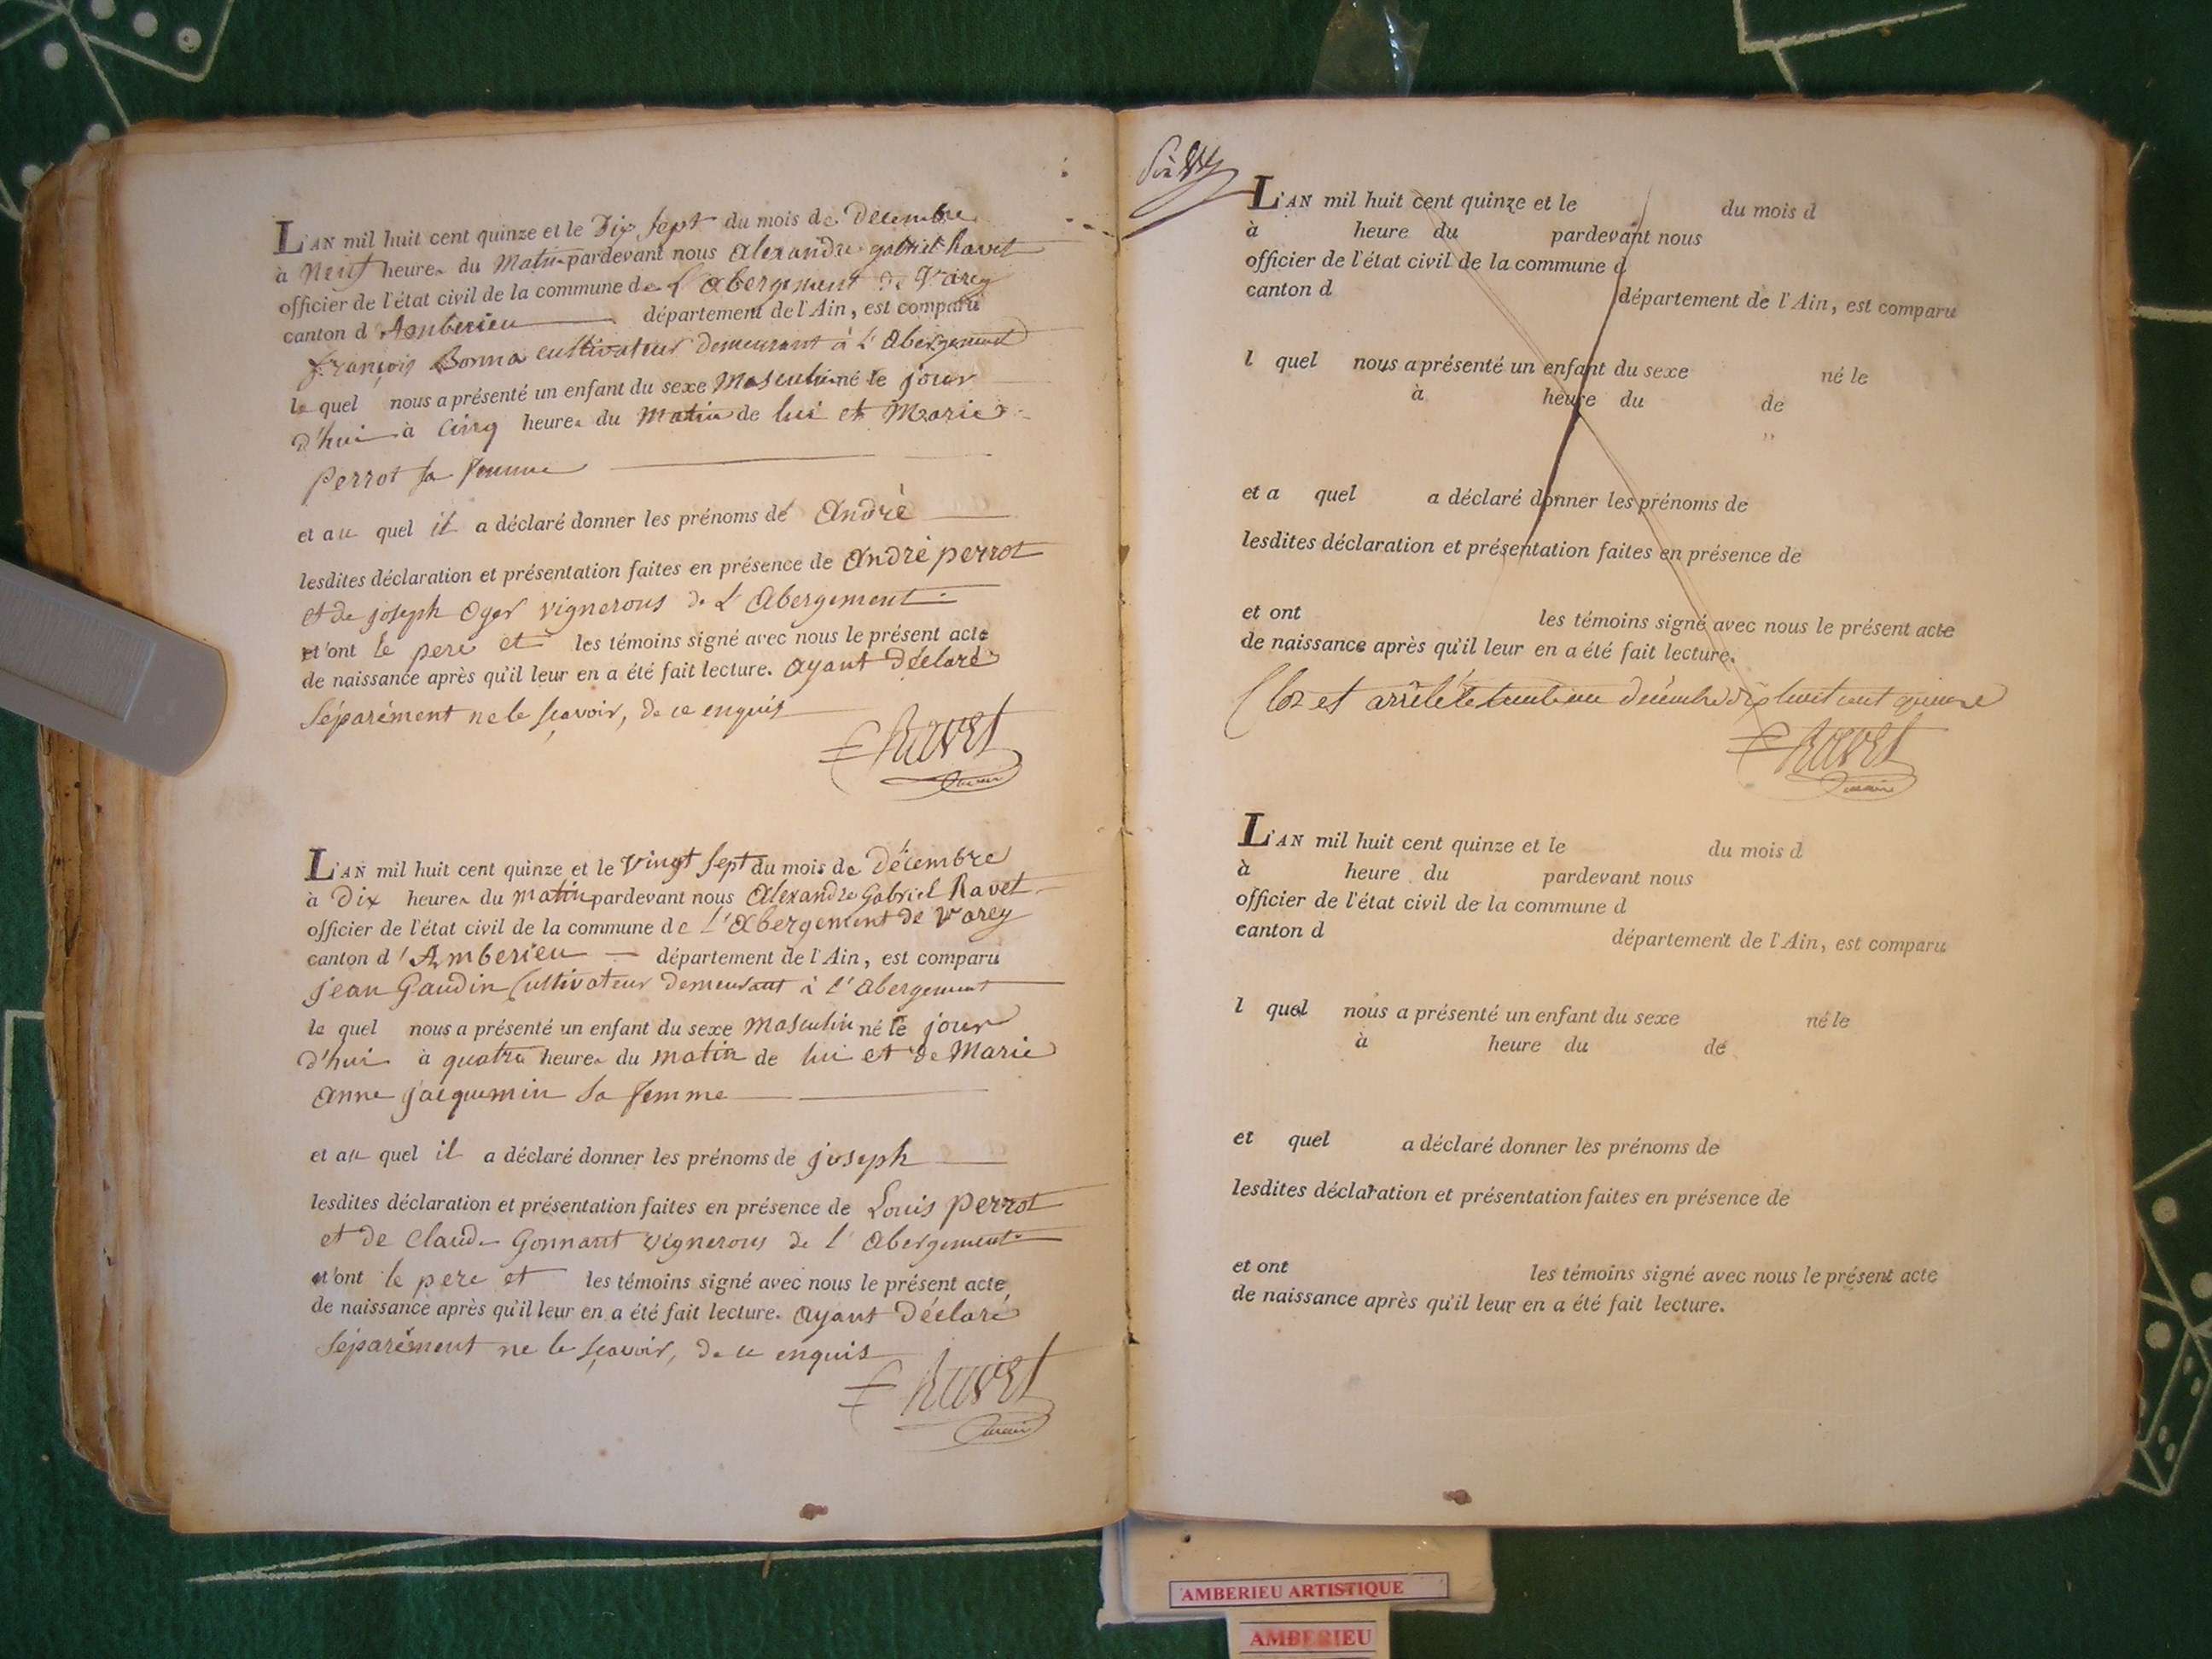 L'AN mil huit cent quinze et le Dix sept du mois de Décembre
à Neuf heures du Matin pardevant nous Alexandre gabriel Ravet
officier de l'état civil de la commune de L'abergement de Varey
canton d'Amberieu département de l'Ain, est comparu
françois Bonna cultivateur demeurant à L'Abergement
le quel nous a présenté un enfant du sexe Masculin né le jour
d'hui à Cinq heures du Matin de lui et Marie
Perrot sa femme
et au quel il a déclaré donner les prénoms de André
lesdites déclaration et présentation faites en présence de André perrot
et de joseph Oger vignerons de L'Abergement
n'ont le pere et les témoins signé avec nous le présent acte
de naissance après qu'il leur en a été fait lecture. ayant Déclaré
Séparément ne le sçavoir, de ce enquis
Ravet
maire
L'AN mil huit cent quinze et le Vingt Sept du mois de Décembre
à Dix heures du matin pardevant nous Alexandre Gabriel Ravet
officier de l'état civil de la commune de L'Abergement de Varey
canton d'Amberieu département de l'Ain, est comparu
jean Gaudin Cultivateur demeurant à l'Abergement
le quel nous a présenté un enfant du sexe Masculin né le jour
d'hui à quatre heures du matin de lui et de Marie
Anne jacquemin Sa femme
et au quel il a déclaré donner les prénoms de joseph
lesdites déclaration et présentation faites en présence de Louis Perrot
et de Claude Gonnant vignerons de l'Abergement
n'ont le pere et les témoins signé avec nous le présent acte
de naissance après qu'il leur en a été fait lecture. ayant Déclaré
Séparément ne le sçavoir, de ce enquis
Ravet
maire
L'AN mil huit cent quinze et le du mois d
à heure du pardevant nous
officier de l'état civil de la commune d
canton d département de l'Ain, est comparu
l quel nous a présenté un enfant du sexe né le
à heure du de
et a quel a déclaré donner les prénoms de
lesdites déclaration et présentation faites en présence de
et ont les témoins signé avec nous le présent acte
de naissance après qu'il leur en a été fait lecture.
Clos et arrêté le trente un décembre dix huit cent quinze
Ravet
maire
L'AN mil huit cent quinze et le du mois d
à heure du pardevant nous
officier de l'état civil de la commune d
canton d département de l'Ain, est comparu
l quel nous a présenté un enfant du sexe né le
à heure du de
et quel a déclaré donner les prénoms de
lesdites déclaration et présentation faites en présence de
et ont les témoins signé avec nous le présent acte
de naissance après qu'il leur en a été fait lecture.
AMBERIEU ARTISTIQUE
AMBERIEU